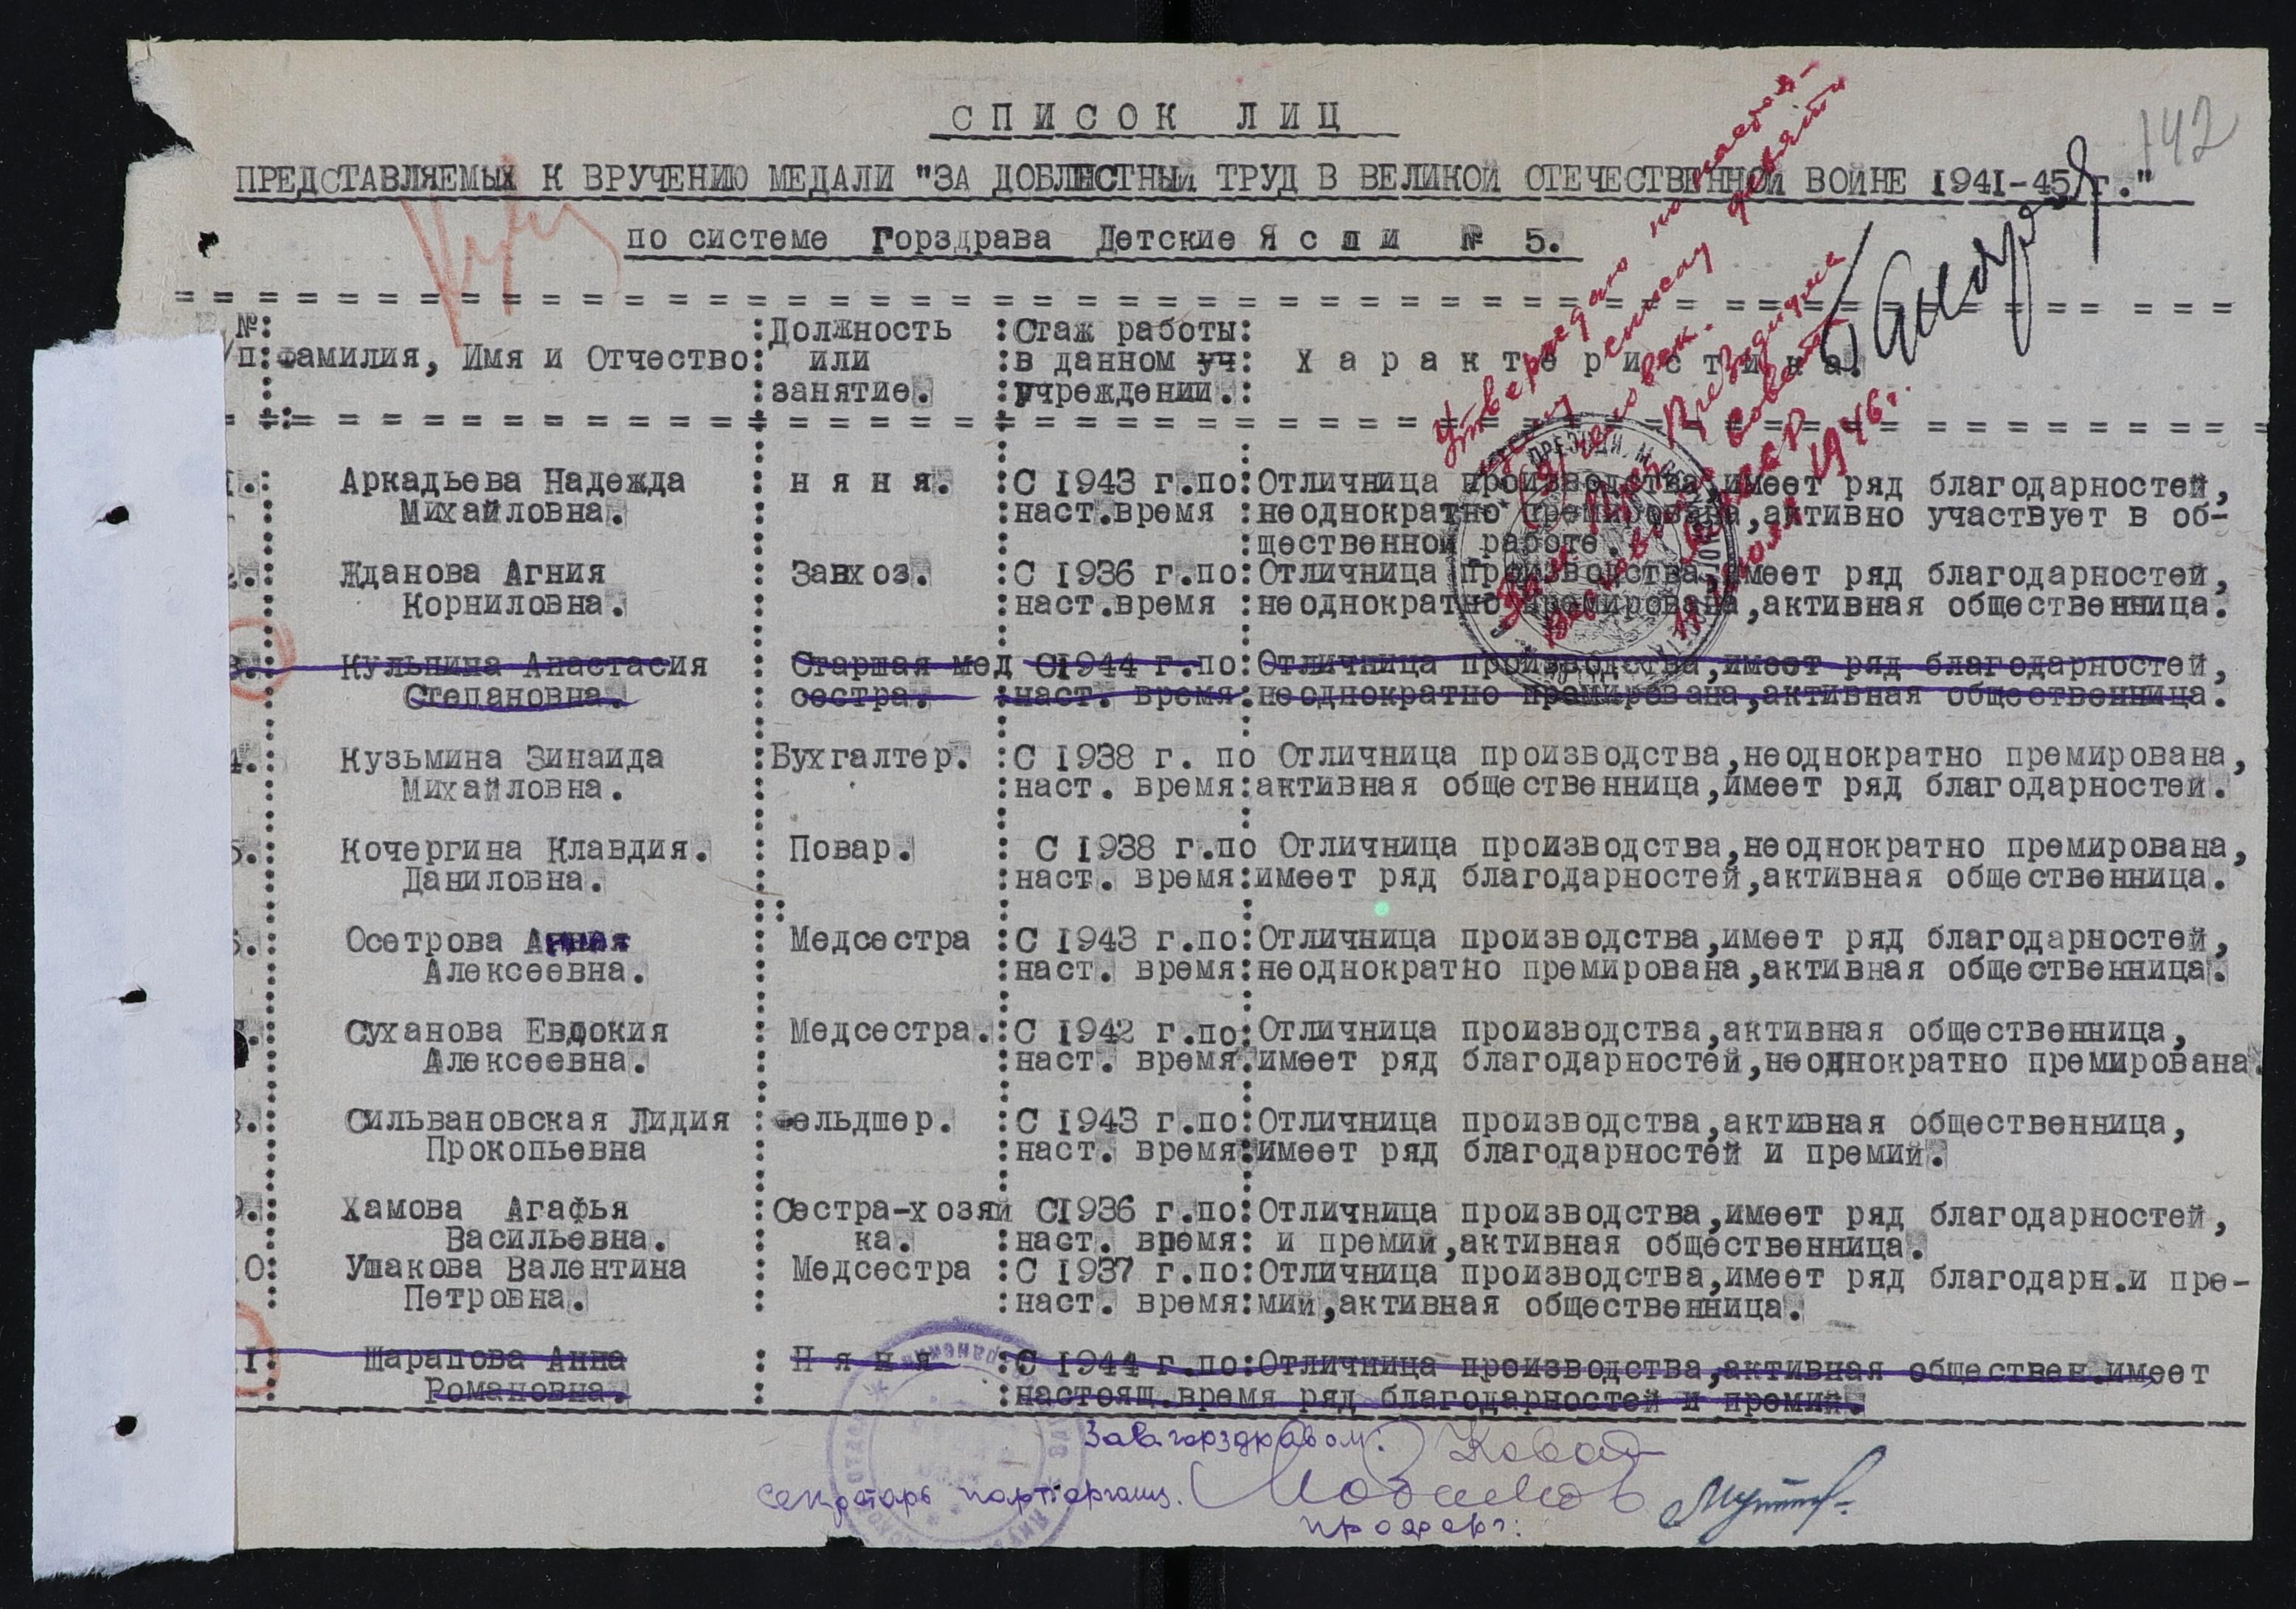 142
СПИСОК ЛИЦ
ПРЕДСТАВЛЯЕМЫХ К ВРУЧЕНИЮ МЕДАЛИ "ЗА ДОБЛЕСТНЫЙ ТРУД В ВЕЛИКОЙ ОТЕЧЕСТВЕННОЙ ВОЙНЕ 1941-45 г."
по системе Горздрава Детские Ясли № 5.
Утверждено по настоя-
щему списку девять
(9) человек.
Зам. Пред. Президиума
Верховного Совета
1946 г.
№: :Должность :Стаж работы:
п:Фамилия, Имя и Отчество: или :в данном уч: Характеристика.
:занятие. :учреждении.:
1.: Аркадьева Надежда : няня. :С 1943 г.по:Отличница производства,имеет ряд благодарностей,
Михайловна. :наст.время :неоднократно премирована,активно участвует в об-
:щественной работе.
2.: Жданова Агния : Завхоз. :С 1936 г.по:Отличница производства,имеет ряд благодарностей,
Корниловна. :наст.время :неоднократно премирована,активная общественница.
3.: Кульпина Анастасия Старшая мед С1944 г.по:Отличница производства,имеет ряд благодарностей,
Степановна. сестра. :наст. время:неоднократно премирована,активная общественница.
4.: Кузьмина Зинаида :Бухгалтер. :С 1938 г. по Отличница производства,неоднократно премирована,
Михайловна. :наст. время:активная общественница,имеет ряд благодарностей.
5.: Кочергина Клавдия. : Повар. : С 1938 г.по Отличница производства,неоднократно премирована,
Даниловна. :наст. время:имеет ряд благодарностей,активная общественница.
6.: Осетрова : Медсестра :С 1943 г.по:Отличница производства,имеет ряд благодарностей,
Алексеевна. :наст. время:неоднократно премирована,активная общественница.
7.: Суханова Евдокия : Медсестра.:С 1942 г.по:Отличница производства,активная общественница,
Алексеевна. :наст. время:имеет ряд благодарностей,неоднократно премирована.
8.: Сильвановская Лидия :Фельдшер. :С 1943 г.по:Отличница производства,активная общественница,
Прокопьевна :наст. время:имеет ряд благодарностей и премий.
9.: Хамова Агафья Сестра-хозяй С1936 г.по:Отличница производства,имеет ряд благодарностей,
Васильевна. : ка. :наст. время: и премий,активная общественница.
10: Ушакова Валентина : Медсестра :С 1937 г.по:Отличница производства,имеет ряд благодарн.и пре-
Петровна. : :наст. время:мий,активная общественница.
11: Шарапова Анна : Няня :С 1944 г.по:Отличница производства,активная обществен.имеет
Романовна. : :настоящ.время ряд благодарностей и премий.
Зав.горздравом:
Секретарь парторганиз.
профорг: